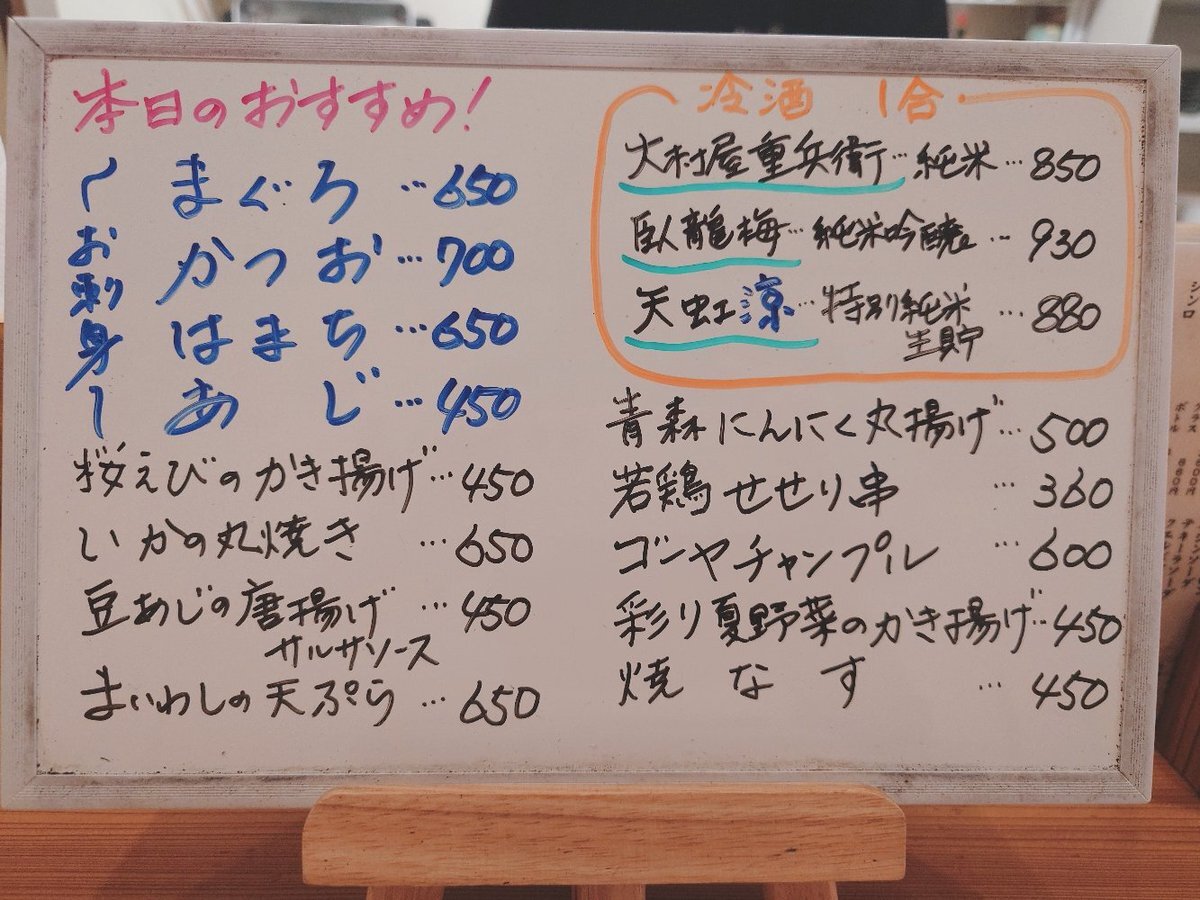 本日のおすすめ!
〜お刺身〜
まぐろ…650
かつお…700
はまち…650
あじ…450
桜えびのかき揚げ…450
いかの丸焼き…650
豆あじの唐揚げ…450
サルサソース
まいわしの天ぷら…650
冷酒 1合
大村屋重兵衛…純米…850
臥龍梅…純米吟醸…930
天虹涼…特別純米…880
生貯
青森にんにく丸揚げ…500
若鶏せせり串…360
ゴーヤチャンプル…600
彩り夏野菜のかき揚げ…450
焼なす…450